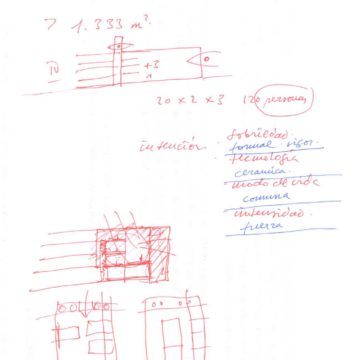 > 1.333 m².
IV
+3
1
20 x 2 x 3 120 personas
sobriedad.
intención. formal. rigor.
tecnología
ceramica.
modo de vida
comuna
intensidad.
fuerza